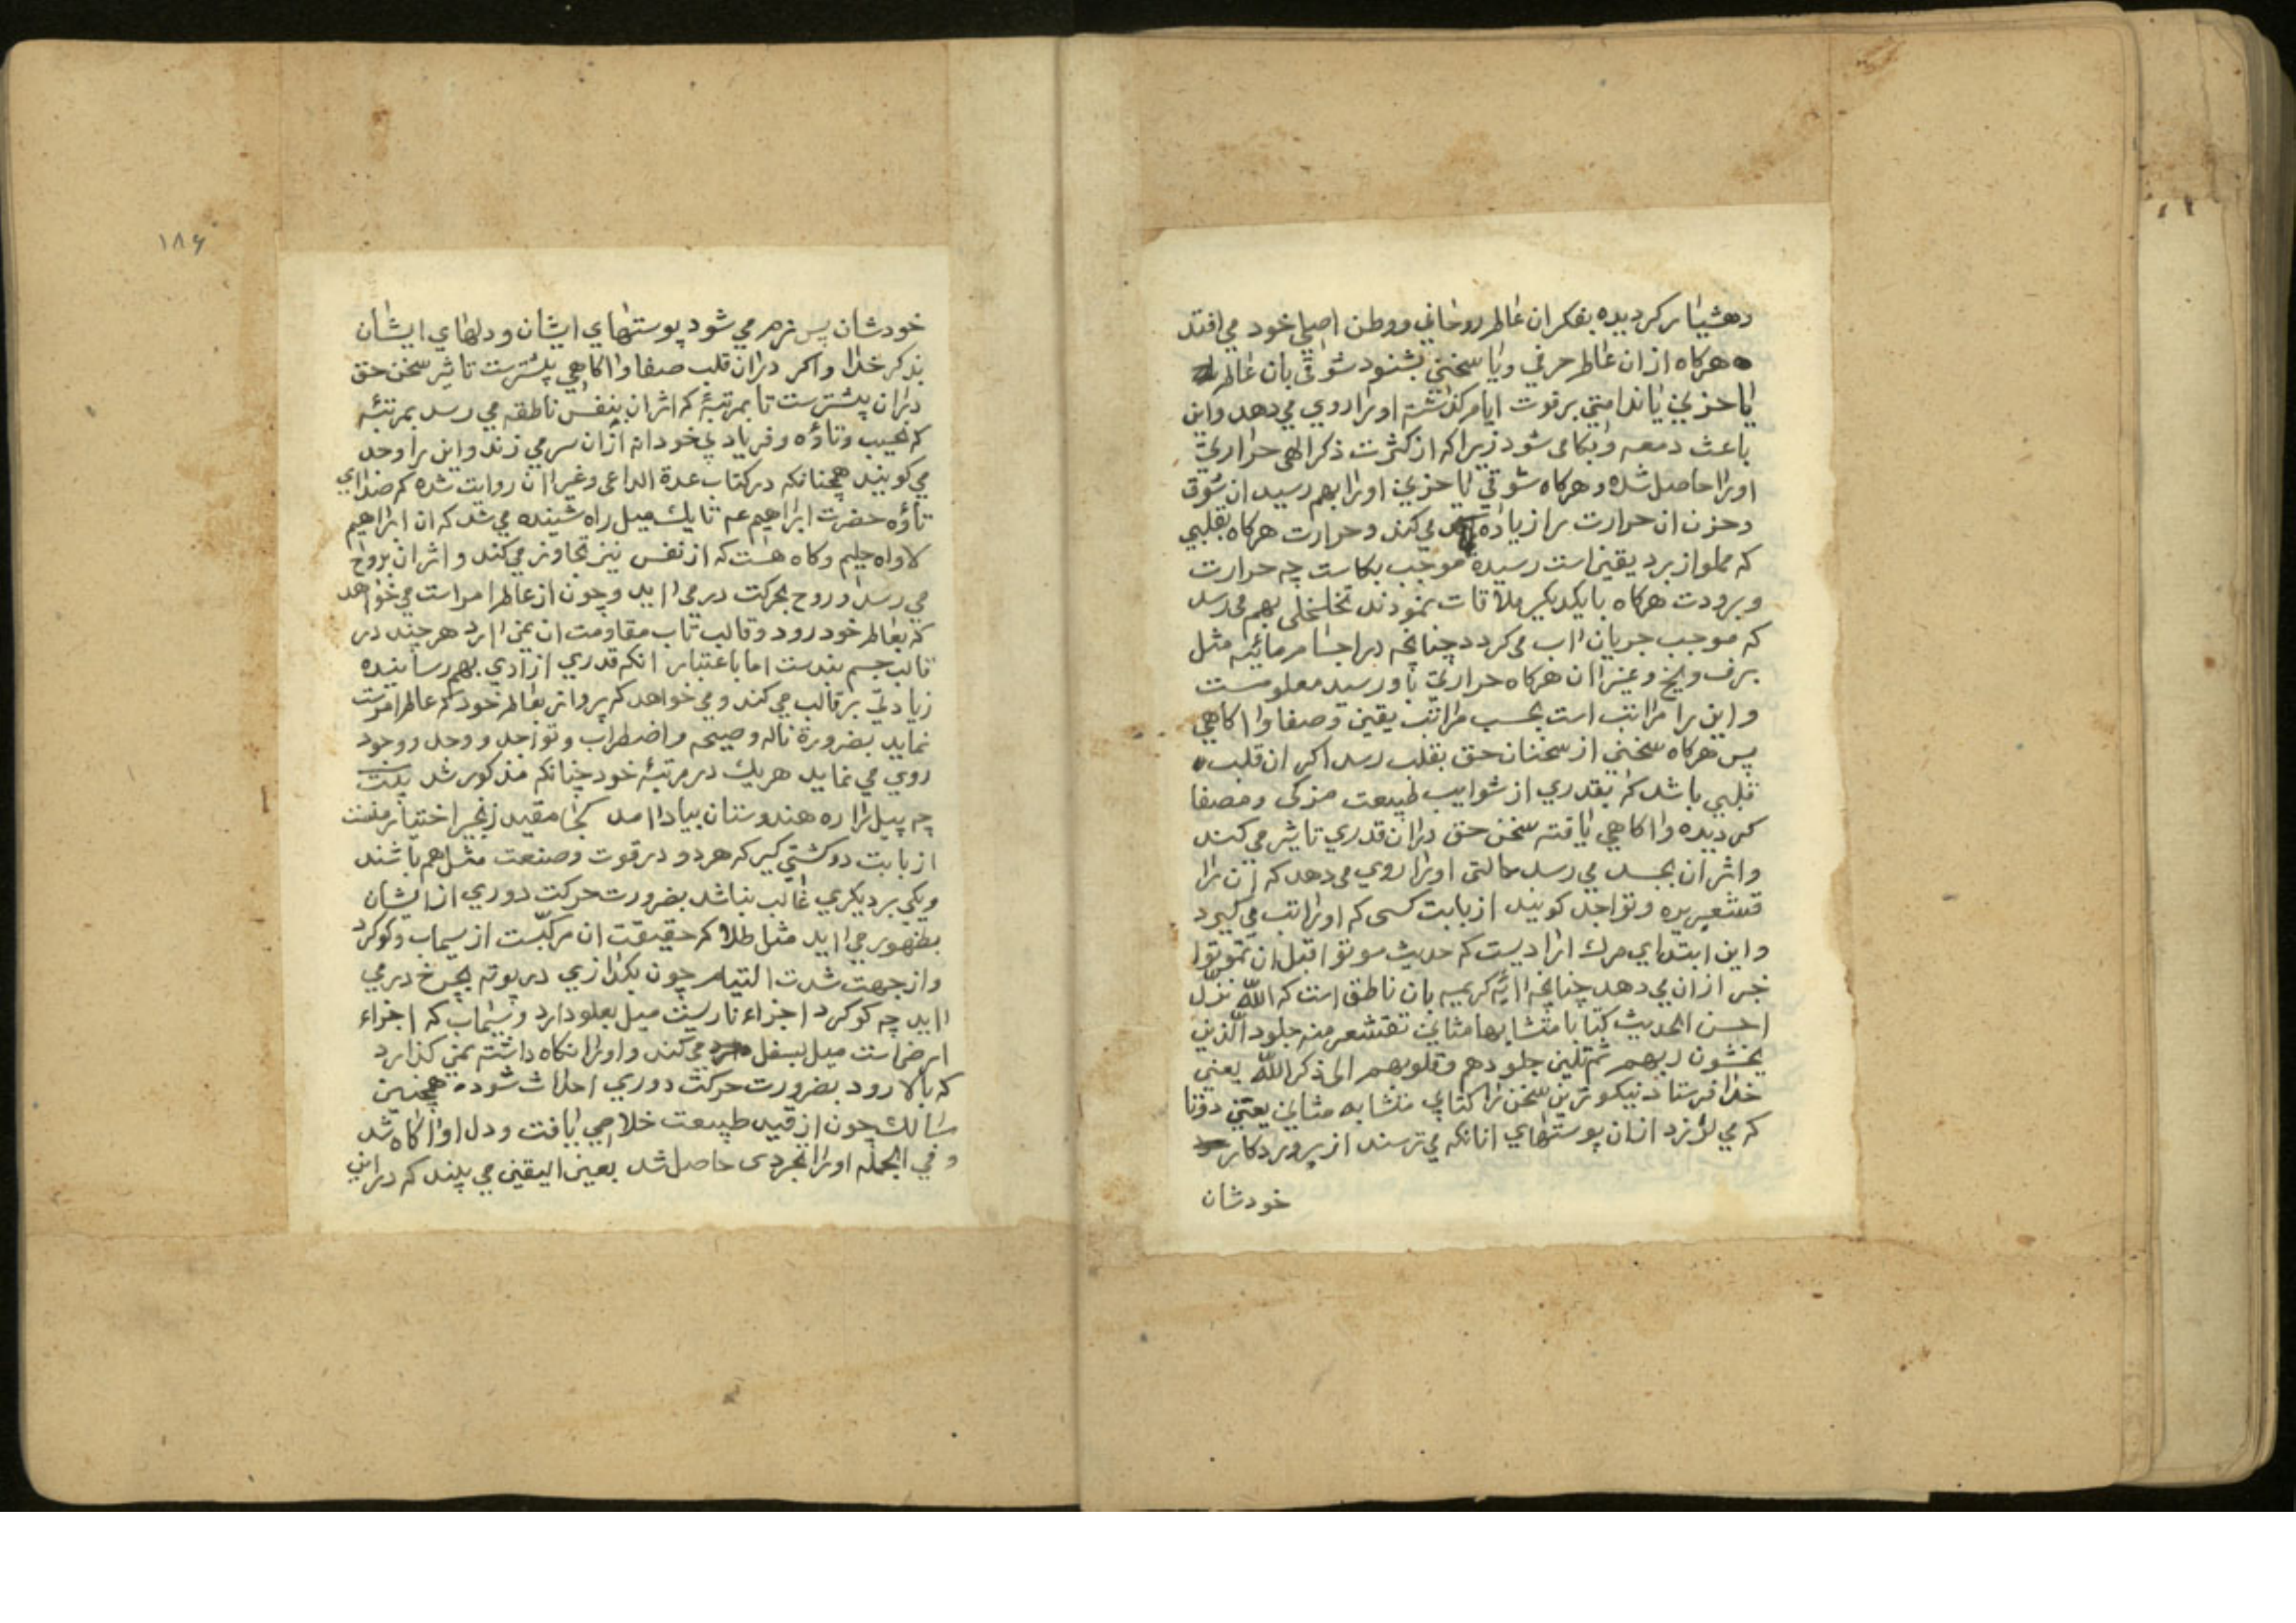 دهشیار کردیده بفکر ان عالم روحانی و وطن اصلی خود می افتد
هرکاه از ان عالم حرفی و یا سخنی بشنود شوقی بان عالم
یا حزنی یا ندامتی بر فوت ایام کذشته او را روی می دهد و این
باعث دمعه و بکا می شود زیرا که از کثرت ذکر الهی حرارتی
او را حاصل شده و هرکاه شوقی یا حزنی او را بهم رسید ان شوق
و حزن ان حرارت را زیاده می کند و حرارت هرکاه بقلبی
که مملو از برد یقین است رسیده موجب بکاست چه حرارت
و برودت هرکاه با یکدیکر ملاقات نمودند تخلخلی بهم می رسد
که موجب جریان اب می کردد چنانچه در اجسام مائیه مثل
برف و یخ و غیر ان هرکاه حرارتی باو رسید معلومست
و این را مراتب است بحسب مراتب یقین و صفا و اکاهی
پس هرکاه سخنی از سخنان حق بقلب رسد اکر ان قلب
قلبی باشد که بقدری از شوایب طبیعت مزکی و مصفا
کردیده و اکاهی یافته سخن حق در ان قدری تاثیر می کند
و اثر ان بجسد می رسد حالتی او را روی می دهد که ان را
قشعریره و تواجد کویند از بابت کسی که او را تب می کیرد
و این ابتدای مرک ارادیست که حدیث موتوا قبل ان تموتوا
خبر از ان می دهد چنانچه ایه کریمه بان ناطق است که الله نزل
احسن الحدیث کتابا متشابها مثانی تقشعر منه جلود الذین
یخشون ربهم ثم تلین جلودهم و قلوبهم الی ذکر الله یعنی
خدا فرستاد نیکوترین سخن را کتابی متشابه مثانی یعنی دوتا
که می لرزد از ان پوستهای انانکه می ترسند از پروردکار
خودشان
۱۸۶
خودشان پس نرم می شود پوستهای ایشان و دلهای ایشان
بذکر خدا و اکر در ان قلب صفا و اکاهی بیشترست تاثیر سخن حق
در ان بیشترست تا بمرتبۀ که اثر ان بنفس ناطقه می رسد بمرتبۀ
که نحیب و تاؤه و فریاد بیخودانه از ان سر می زند و این را وجد
می کویند همچنانکه در کتاب عدة الداعی و غیر ان روایت شده که صدای
تاؤه حضرت ابراهیم عم تا یک میل راه شنیده می شد که ان ابراهیم
لاواه حلیم و کاه هست که از نفس نیز تجاوز می کند و اثر ان بروح
می رسد و روح بحرکت در می اید و چون از عالم امر است می خواهد
که بعالم خود رود و قالب تاب مقاومت ان نمی ارد هرچند در
قالب جسم بندست اما باعتبار انکه قدری ازادی بهم رسانیده
زیادتی بر قالب می کند و می خواهد که پرواز بعالم خود که عالم امرست
نماید بضرورة ناله و صیحه و اضطراب و تواجد و وجد و وجود
روی می نماید هریک در مرتبۀ خود چنانکه مذکور شد بیت
چه پیل را ره هندوستان بیاد امد کجا مقید زنجیر اختیار منست
از بابت دو کشتی کیر که هر دو در قوت و صنعت مثل هم باشند
و یکی بر دیکری غالب نباشد بضرورت حرکت دوری از ایشان
بظهور می اید مثل طلا که حقیقت ان مرکبست از سیماب و کوکرد
و از جهت شدت التیام چون بکدازی در بوته بچرخ در می
اید چه کوکرد اجزاء ناریست میل بعلو دارد و سیماب که اجزاء
ارضی است میل بسفل می کند و او را نکاه داشته نمی کذارد
که بالا رود بضرورت حرکت دوری احداث شود همچنین
سالک چون از قید طبیعت خلاصی یافت و دل او اکاه شد
و فی الجمله او را تجردی حاصل شد بعین الیقین می بیند که در این